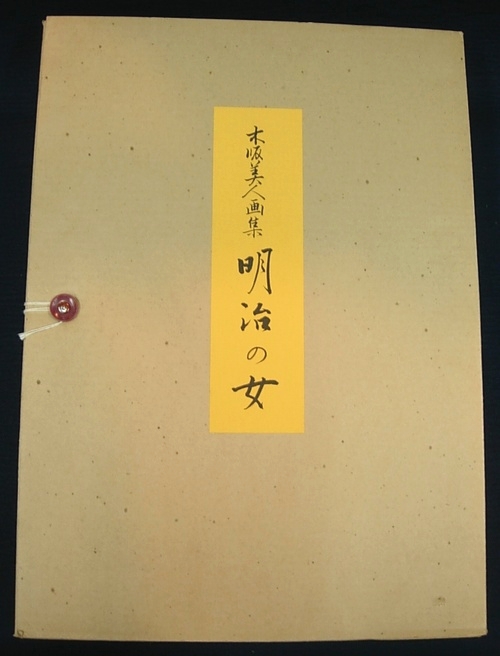 木版美人画集
明治の女